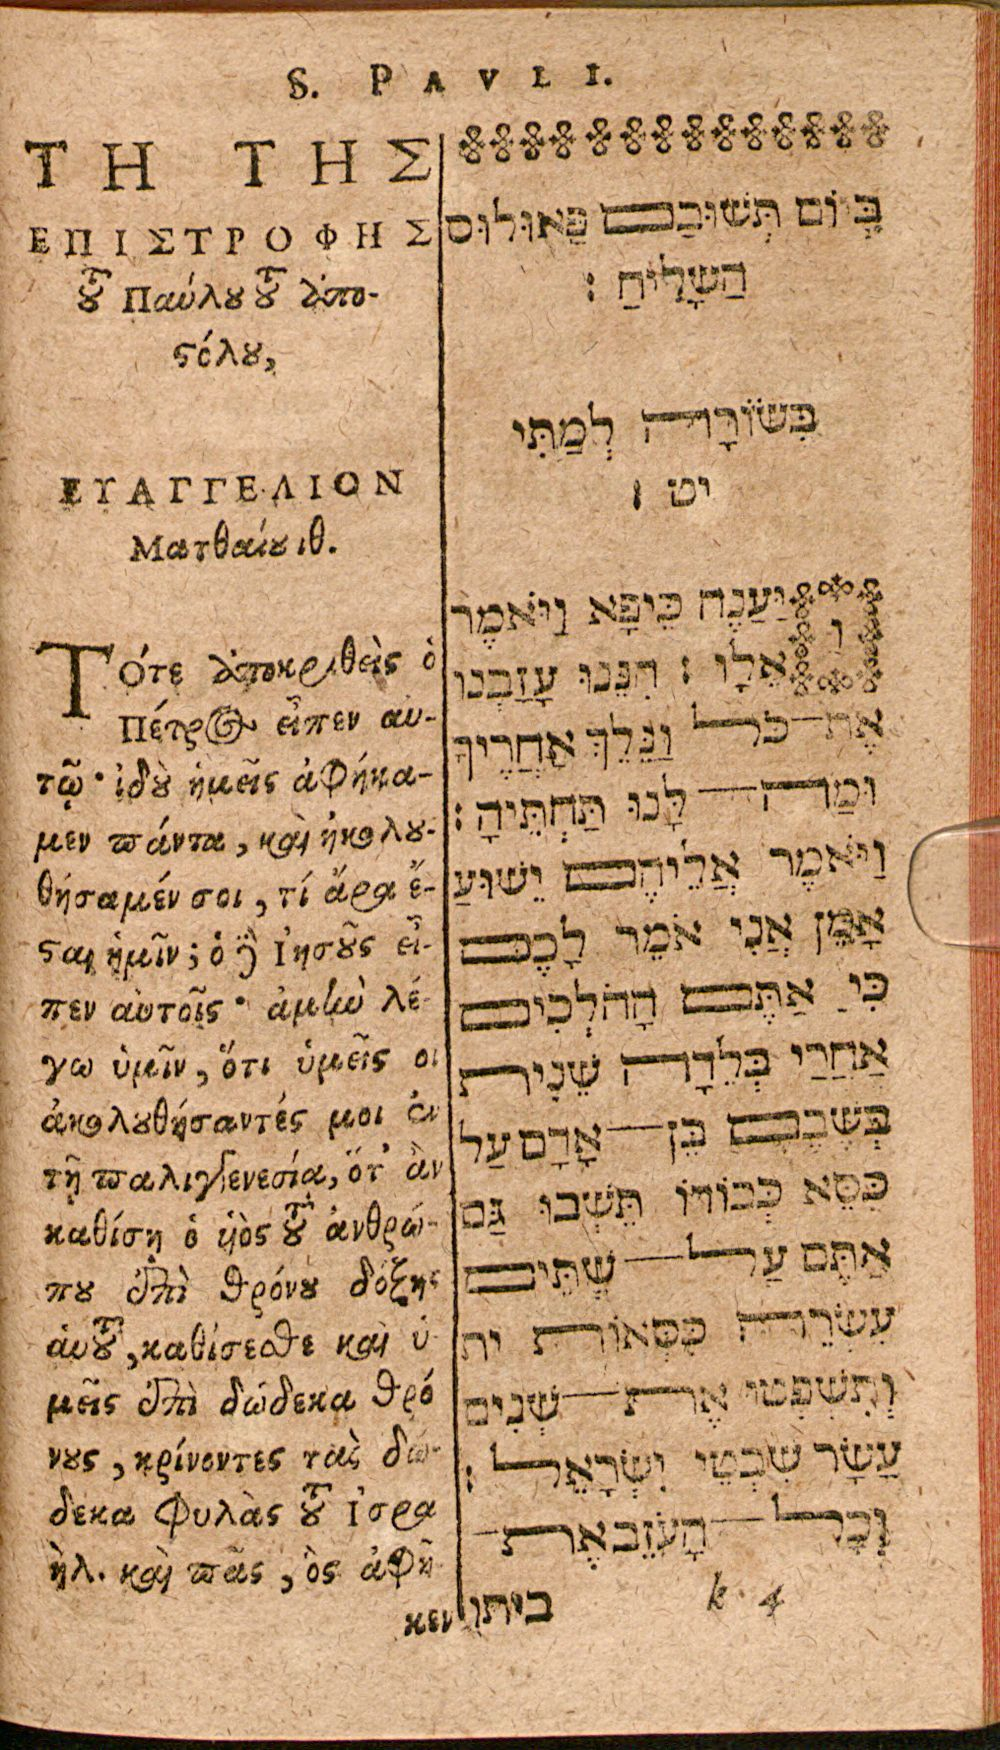 S. PAVLI.
ΤΗ ΤΗΣ
ΕΠΙΣΤΡΟΦΗΣ
τοῦ Παύλου τοῦ ἀπο-
στόλου,
ΕΥΑΓΓΕΛΙΟΝ
Ματθαίου ιθ.
ΤΟτε ἀποκριθεὶς ὁ
Πέτρος εἶπεν αυ-
τῷ· ἰδοὺ ἡμεῖς ἀφήκα-
μεν πάντα, καὶ ἠκολου-
θήσαμέν σοι, τί ἄρα ἔ-
σται ἡμῖν; ὁ δὲ Ἰησοῦς εἶ-
πεν αὐτοῖς· ἀμὴν λέ-
γω ὑμῖν, ὅτι ὑμεῖς οι
ἀκολουθήσαντές μοι ἐν
τῇ παλιγγενεσίᾳ, ὅτ' ἂν
καθίσῃ ὁ υἱὸς τοῦ ἀνθρώ-
που ἐπὶ θρόνου δόξης
ἁυτοῦ, καθίσεσθε καὶ ὑ-
μεῖς ἐπὶ δώδεκα θρό
νους, κρίνοντες τὰς δώ-
δεκα φυλὰς τοῦ Ἰσρα
ήλ. καὶ πᾶς, ὃς ἀφῆ
κεν
בְּיוֹם תְּשׁוּבַם פַּאוּלוּס
הַשָּׁלִיחַ :
בְּשׂוֹרָה לְמַתִּי
יט :
וַיַּעֲנֶה כֵּיפָא וַיֹּאמֶר
אֵלָו : הִנֵּנוּ עָזַבְנוּ
אֶת־כֹּל וַנֵּלֵךְ אַחֲרֶיךָ
וּמַה־לָּנוּ תַּחְתֵּיהָ :
וַיֹּאמֶר אֲלֵיהֶם יֵשׁוּעַ
אָמֵן אֲנִי אֹמֵר לָכֶם
כִּי אַתֶּם הָהֹלְכִים
אַחֲרַי בְּלֵדָה שֵׁנִית
בְּשֶׁבֶם בֵּן־אָדָם עַל
כִּסֵא כְּבוֹדוֹ תֵּשְׁבוּ גַּם
אַתֶּם עַל־שְׁתֵּים
עֶשְׂרֵה כִּסְאוֹת ית
וְתִשְׁפְּטוּ אֶת־שְׁנִים
עָשָׂר שִׁבְטֵי יִשְׂרָאֵל :
וְכָל־הָעֹזֵב אֶת־
ביתו
k 4